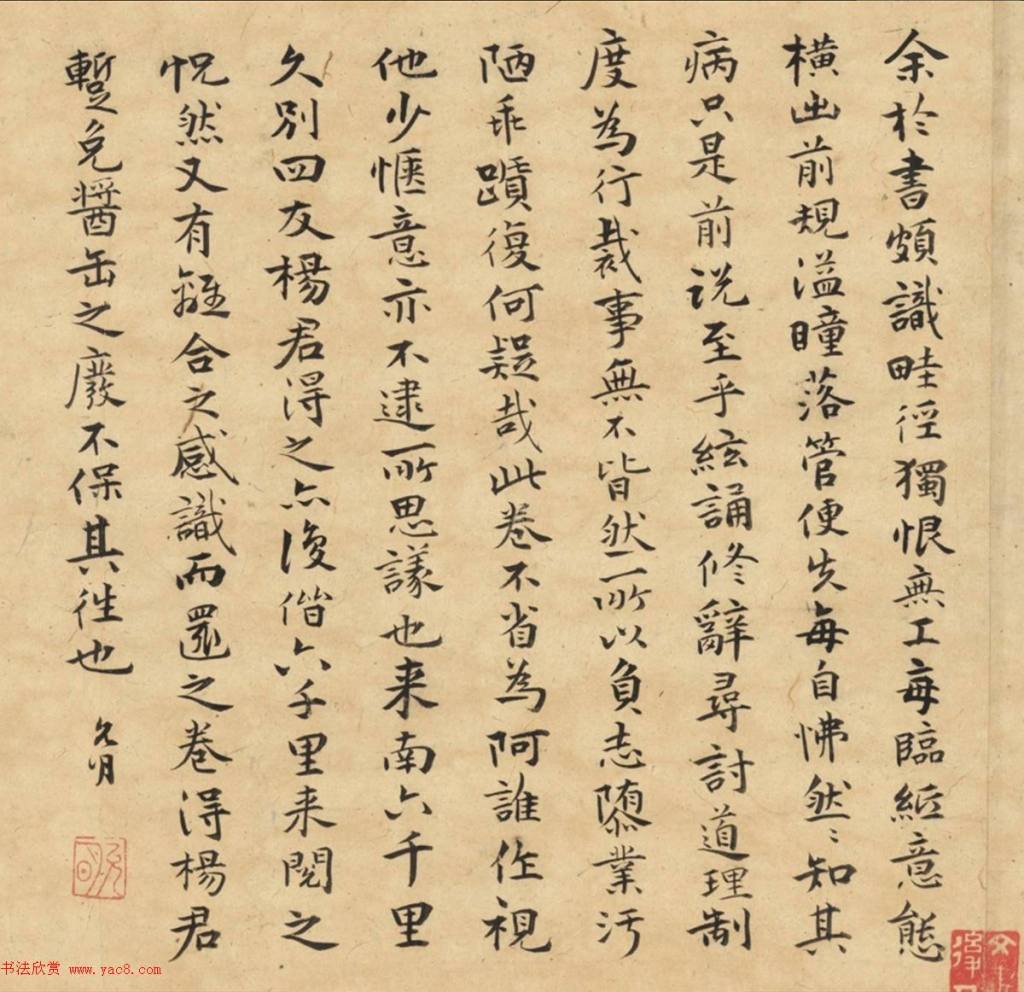 余於書頗識畦徑獨恨無工每臨紙意態
橫出前規溢瞳落管便失每自怫然〻知其
病只是前说至乎絃誦修辭尋討道理制
度為行裁事無不皆然所以負志隳業汚
陋乖躓復何疑哉此卷不省為阿誰作視
他少愜意亦不逮所思議也来南六千里
久別四友楊君得之亦復偕六千里来閱之
怳然又有離合之感識而還之卷得楊君
蹔免醬缶之廢不保其徃也 允明
允明
书法欣赏 www.yac8.com